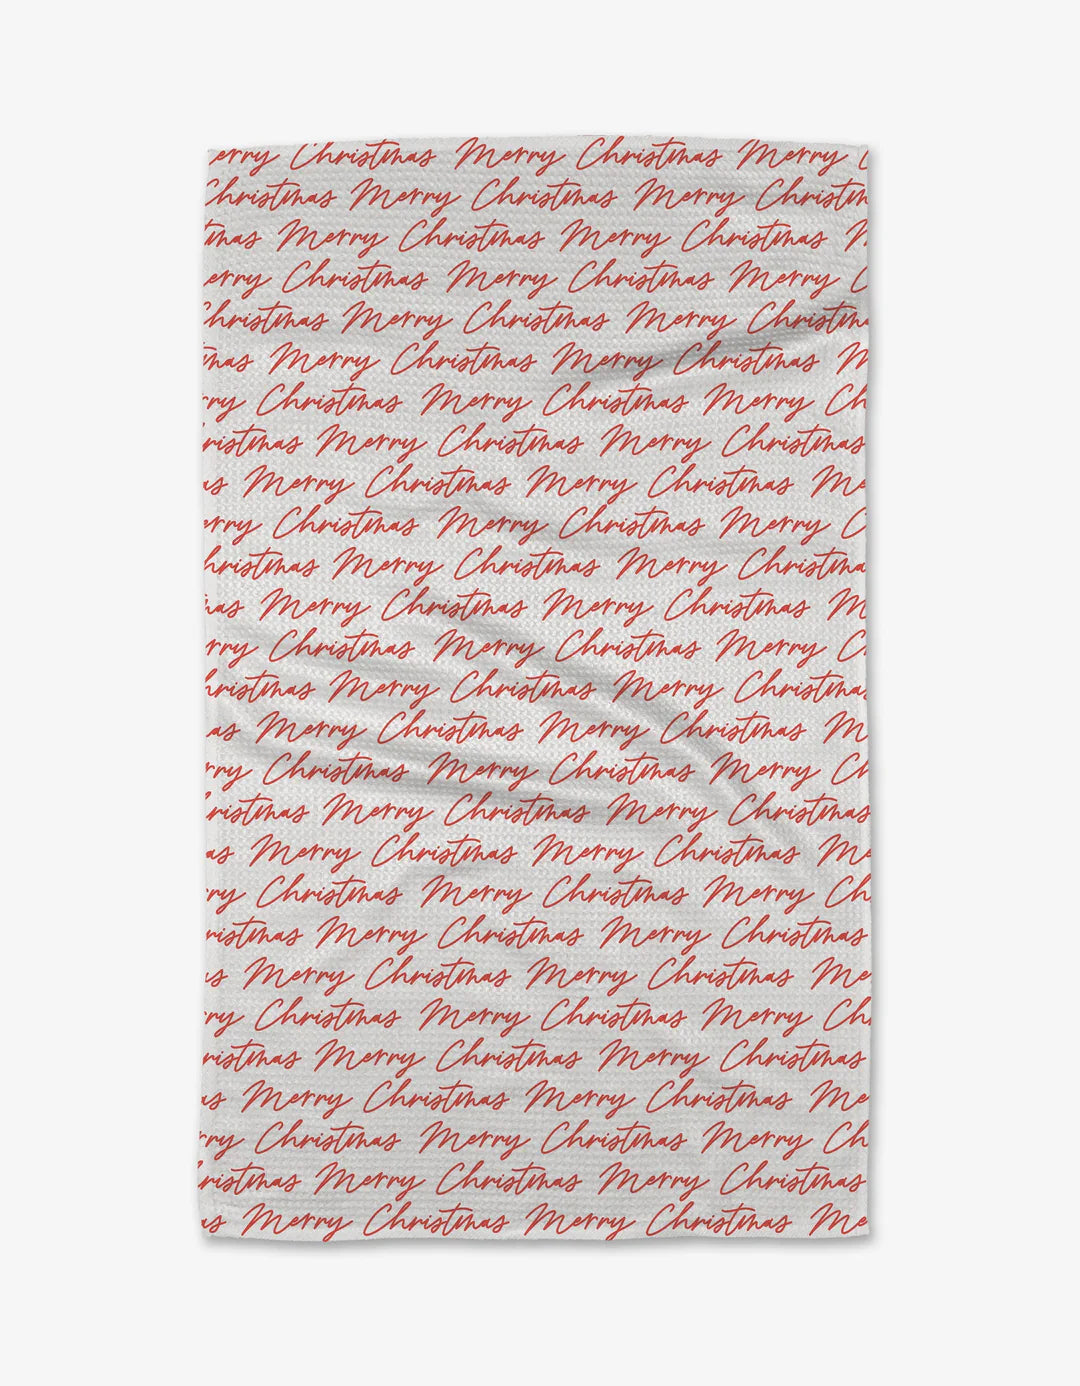 erry Christmas Merry Christmas Merry C
Christmas Merry Christmas Merry Christm
tmas Merry Christmas Merry Christmas M
erry Christmas Merry Christmas Merry C
Christmas Merry Christmas Merry Christma
mas Merry Christmas Merry Christmas M
rry Christmas Merry Christmas Merry Ch
hristmas Merry Christmas Merry Christmas
as Merry Christmas Merry Christmas Me
erry Christmas Merry Christmas Merry C
hristmas Merry Christmas Merry Christma
mas Merry Christmas Merry Christmas M
rry Christmas Merry Christmas Merry C
hristmas Merry Christmas Merry Christma
as Merry Christmas Merry Christmas M
rry Christmas Merry Christmas Merry Ch
hristmas Merry Christmas Merry Christmas
as Merry Christmas Merry Christmas Me
rry Christmas Merry Christmas Merry Ch
ristmas Merry Christmas Merry Christmas
as Merry Christmas Merry Christmas Me
rry Christmas Merry Christmas Merry Ch
ristmas Merry Christmas Merry Christmas
as Merry Christmas Merry Christmas Me
rry Christmas Merry Christmas Merry Ch
hristmas Merry Christmas Merry Christmas
as Merry Christmas Merry Christmas Me